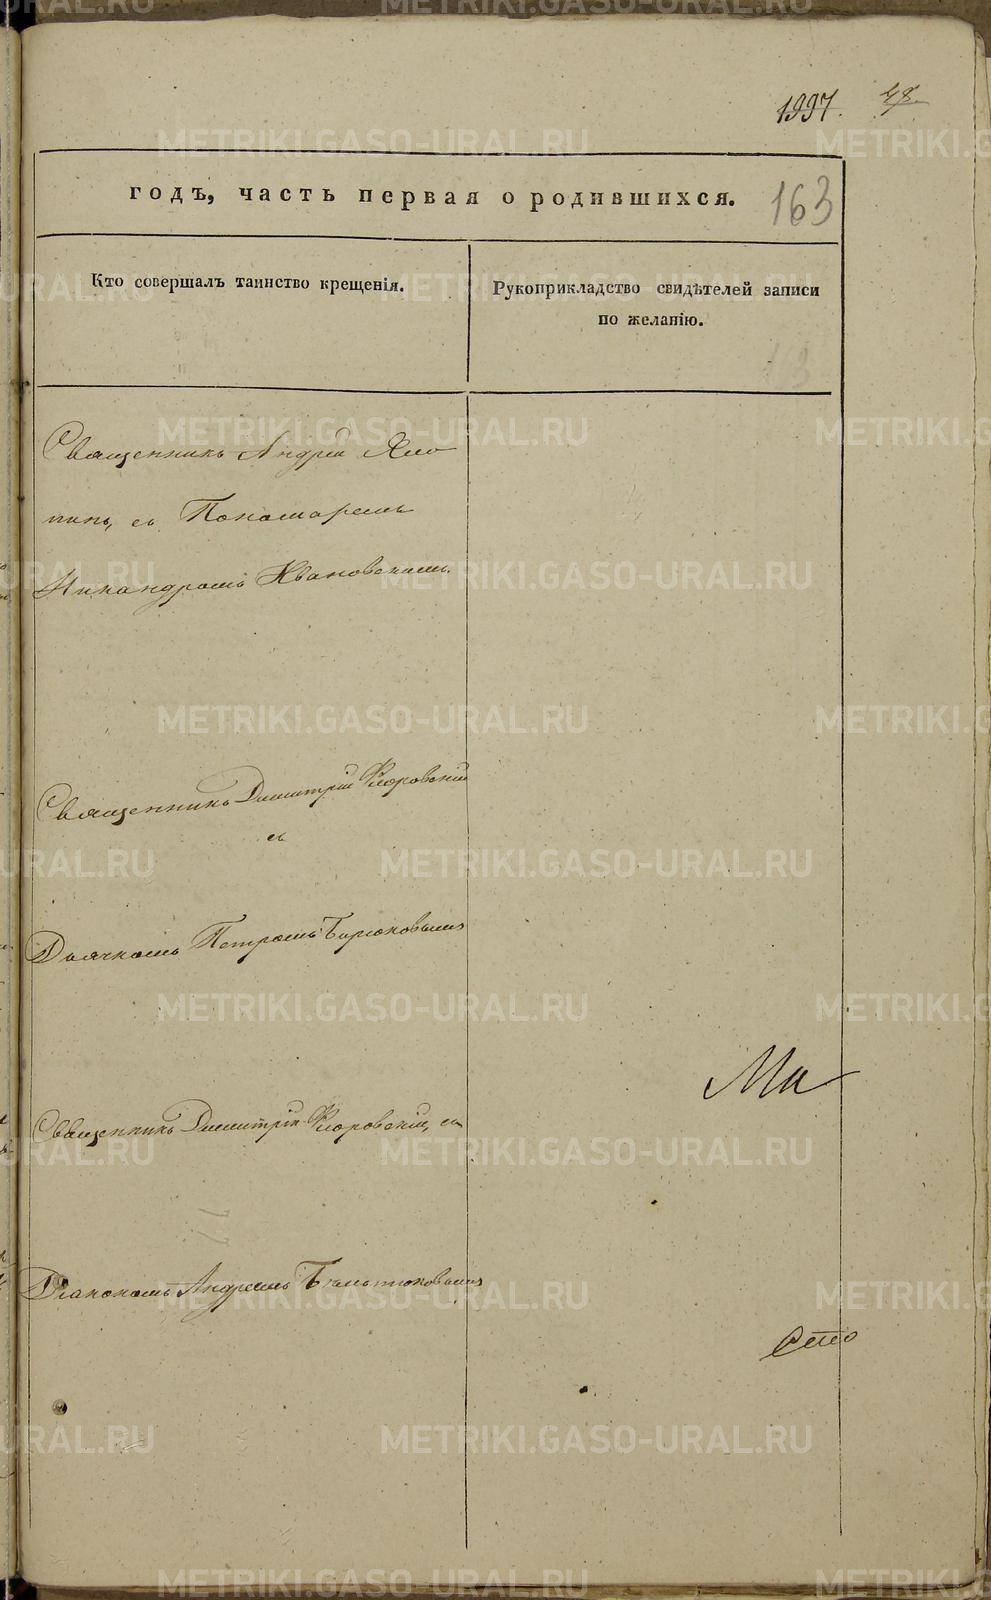 1997. 48.
годъ, часть первая о родившихся. 163
Кто совершалъ таинство крещенія.
Рукоприкладство свидѣтелей записи
по желанію.
Священникъ Андрей
съ Пономаремъ
Никандромъ Ивановскимъ.
Священникъ Димитрій Флоровскій
съ
Дьячкомъ Петромъ Бирюковымъ
Ма
Священникъ Димитрій Флоровскій, съ
Діакономъ Андреемъ
METRIKI.GASO-URAL.RU